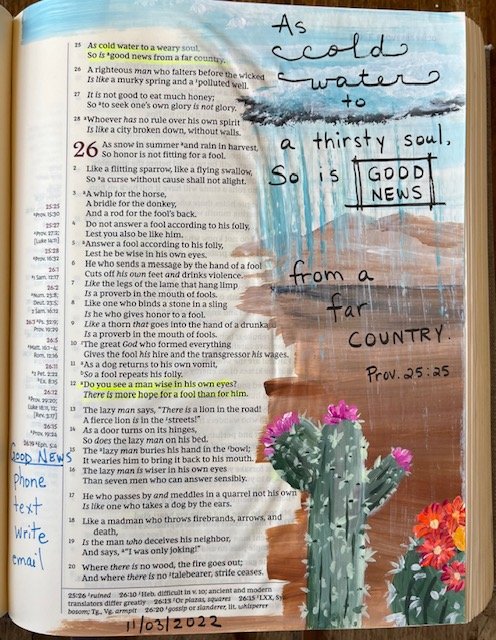 25 As cold water to a weary soul,
So is ᵃgood news from a far country.
26 A righteous man who falters before the wicked
Is like a murky spring and a ¹polluted well.
27 It is not good to eat much honey;
So ᵃto seek one's own glory is not glory.
28 ᵃWhoever has no rule over his own spirit
Is like a city broken down, without walls.
26 As snow in summer ᵃand rain in harvest,
So honor is not fitting for a fool.
2 Like a flitting sparrow, like a flying swallow,
So ᵃa curse without cause shall not alight.
3 ᵃA whip for the horse,
A bridle for the donkey,
And a rod for the fool's back.
4 Do not answer a fool according to his folly,
Lest you also be like him.
5 ᵃAnswer a fool according to his folly,
Lest he be wise in his own eyes.
6 He who sends a message by the hand of a fool
Cuts off his own feet and drinks violence.
7 Like the legs of the lame that hang limp
Is a proverb in the mouth of fools.
8 Like one who binds a stone in a sling
Is he who gives honor to a fool.
9 Like a thorn that goes into the hand of a drunkard
Is a proverb in the mouth of fools.
10 ¹The great God who formed everything
Gives the fool his hire and the transgressor his wages.
11 ᵃAs a dog returns to his own vomit,
ᵇSo a fool repeats his folly.
12 ᵃDo you see a man wise in his own eyes?
There is more hope for a fool than for him.
13 The lazy man says, "There is a lion in the road!
A fierce lion is in the ¹streets!"
14 As a door turns on its hinges,
So does the lazy man on his bed.
15 The ᵃlazy man buries his hand in the ¹bowl;
It wearies him to bring it back to his mouth.
16 The lazy man is wiser in his own eyes
Than seven men who can answer sensibly.
17 He who passes by and meddles in a quarrel not his own
Is like one who takes a dog by the ears.
18 Like a madman who throws firebrands, arrows, and
death,
19 Is the man who deceives his neighbor,
And says, ᵃ"I was only joking!"
20 Where there is no wood, the fire goes out;
And where there is no ¹talebearer, strife ceases.
25:25
ᵃProv. 15:30
25:27
ᵃProv. 27:2;
[Luke 14:11]
25:28
ᵃProv. 16:32
26:1
ᵃ1 Sam. 12:17
26:2
ᵃNum. 23:8;
Deut. 23:5;
2 Sam. 16:12
26:3 ᵃPs. 32:9;
Prov. 19:29
26:5
ᵃMatt. 16:1–4;
Rom. 12:16
26:11
ᵃ2 Pet. 2:22
ᵇEx. 8:15
26:12
ᵃProv. 29:20;
Luke 18:11, 12;
[Rev. 3:17]
26:15
ᵃProv. 19:24
26:19 ᵃEph. 5:4
25:26 ¹ruined 26:10 ¹Heb. difficult in v. 10; ancient and modern
translators differ greatly 26:13 ¹Or plazas, squares 26:15 ¹LXX, Sy
bosom; Tg., Vg. armpit 26:20 ¹gossip or slanderer, lit. whisperer
GOOD NEWS
phone
text
write
email
11/03/2022
As
cold
water
to
a thirsty soul,
So is GOOD
NEWS
from a
far
COUNTRY.
Prov. 25:25